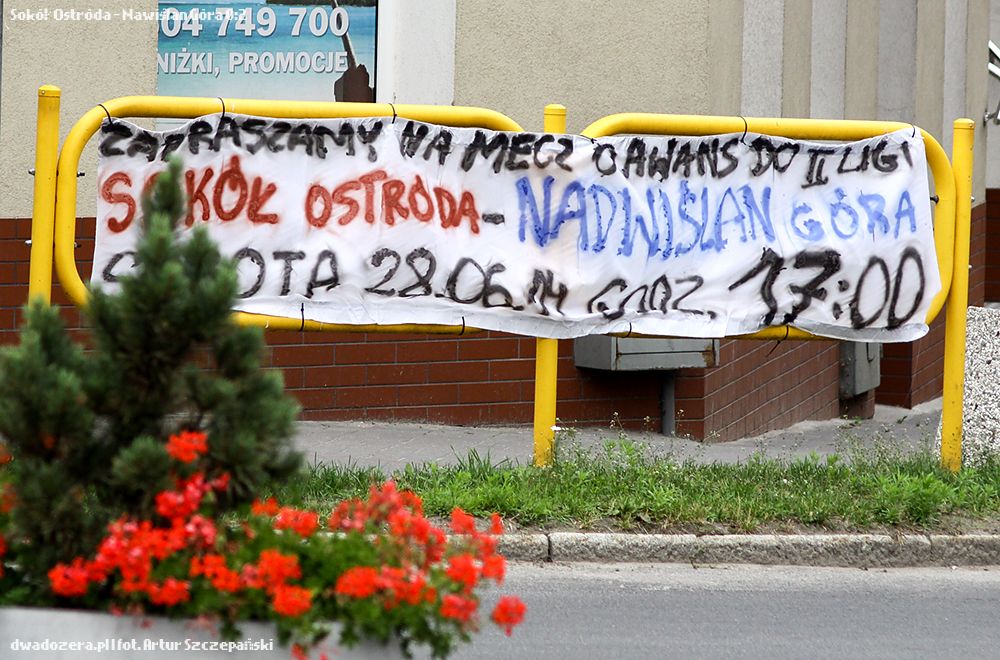 Sokół Ostróda - Nawiślan Góra 0:2
04 749 700
NIŻKI, PROMOCJE
ZAPRASZAMY NA MECZ O AWANS DO II LIGI
SOKÓŁ OSTRÓDA - NADWIŚLAN GÓRA
SOBOTA 28.06.14 GODZ. 17:00
dwadozera.pl|fot. Artur Szczepański